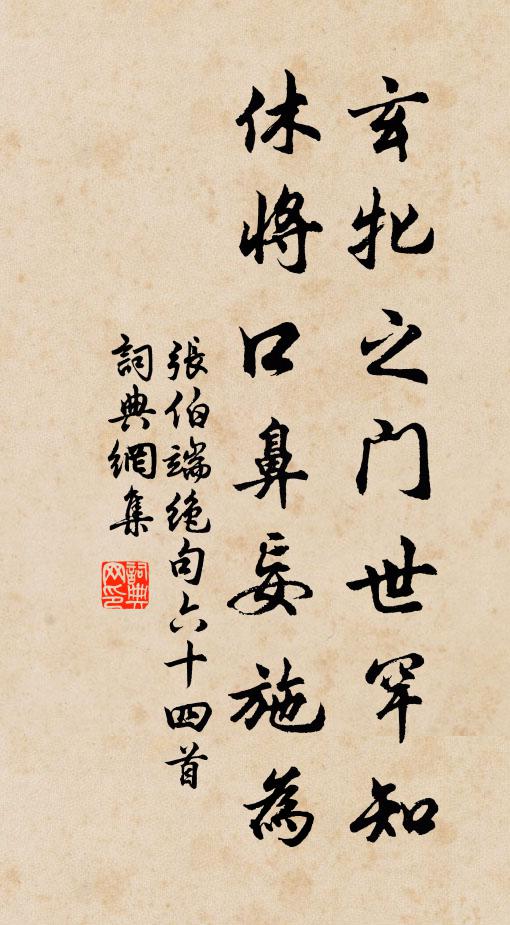 玄牝之门世罕知
休将口鼻妄施為
張伯端绝句六十四首
詞典網集
詞典网印